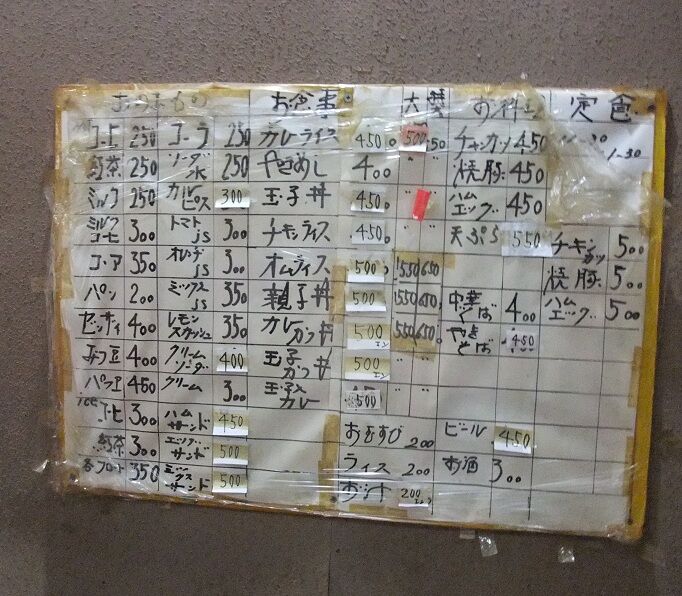 おのみもの お食事 大 お料理 定食
コーヒ 250 コーラ 250 カレーライス 450 500 チキンカツ 450
紅茶 250 ソーダ水 250 やきめし 400 〃 〃 焼豚 450 1-30
ミルク 250 カルピス 300 玉子丼 450 〃 ハムエッグ 450
ミルクコーヒ 300 トマトjs 300 チキンライス 450 〃 〃 天ぷら 550 チキンカツ 500
ココア 350 オレンヂjs 300 オムライス 500 550 650 焼豚 500
パン 200 ミックスjs 350 親子丼 500 550 650 中華そば 400 ハムエッグ 500
ゼンザイ 400 レモンスカッシュ 350 カレーカツ丼 500エン 550 650 やきそば 450
みつ豆 400 クリームソーダ 400 玉子カツ丼 500エン 〃 〃
パフェ 450 クリーム 300 玉子入カレー 500 〃 〃
ice コーヒ 300 ハムサンド 450 おむすび 200 ビール 450
紅茶 300 エッグサンド 500 ライス 200 お酒 300
各フロート 350 ミックスサンド 500 200エン